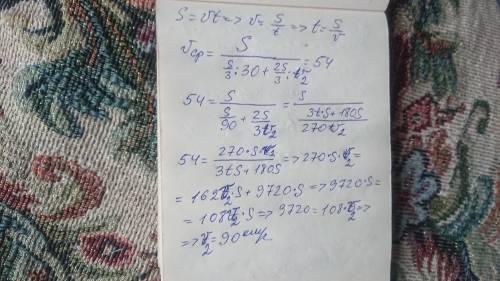 S = vt => v = S/t => t = S/v
vср = S / (S/3 : 30 + 2S/3 : v2) = 54
54 = S / (S/90 + 2S/3v2) = S / ((3v2·S + 180S) / 270v2)
54 = 270·S·v2 / (3v2·S + 180S) => 270·S·v2 =
= 162v2·S + 9720·S => 9720·S =
= 108v2·S => 9720 = 108·v2 =>
=> v2 = 90 км/ч